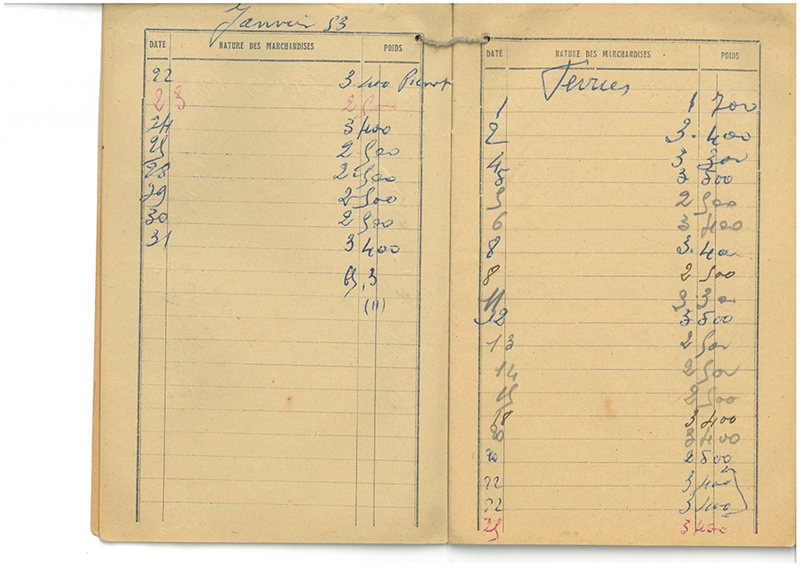 Janvier 53
DATE NATURE DES MARCHANDISES POIDS
22 3 400 Pierrot
23 2 500
24 3 400
25 2 500
28 2 500
29 2 500
30 2 500
31 3 400
65,3
(11)
DATE NATURE DES MARCHANDISES POIDS
Fevrier
1 1 700
2 3. 400
4 3 300
5 3 500
5 2 500
6 3 400
8 3. 400
8 2 500
11 3 300
12 3 500
13 2 500
14 2 500
15 2 500
18 3 400
20 3 400
20 2 500
22 3 400
22 3 400
25 3 400